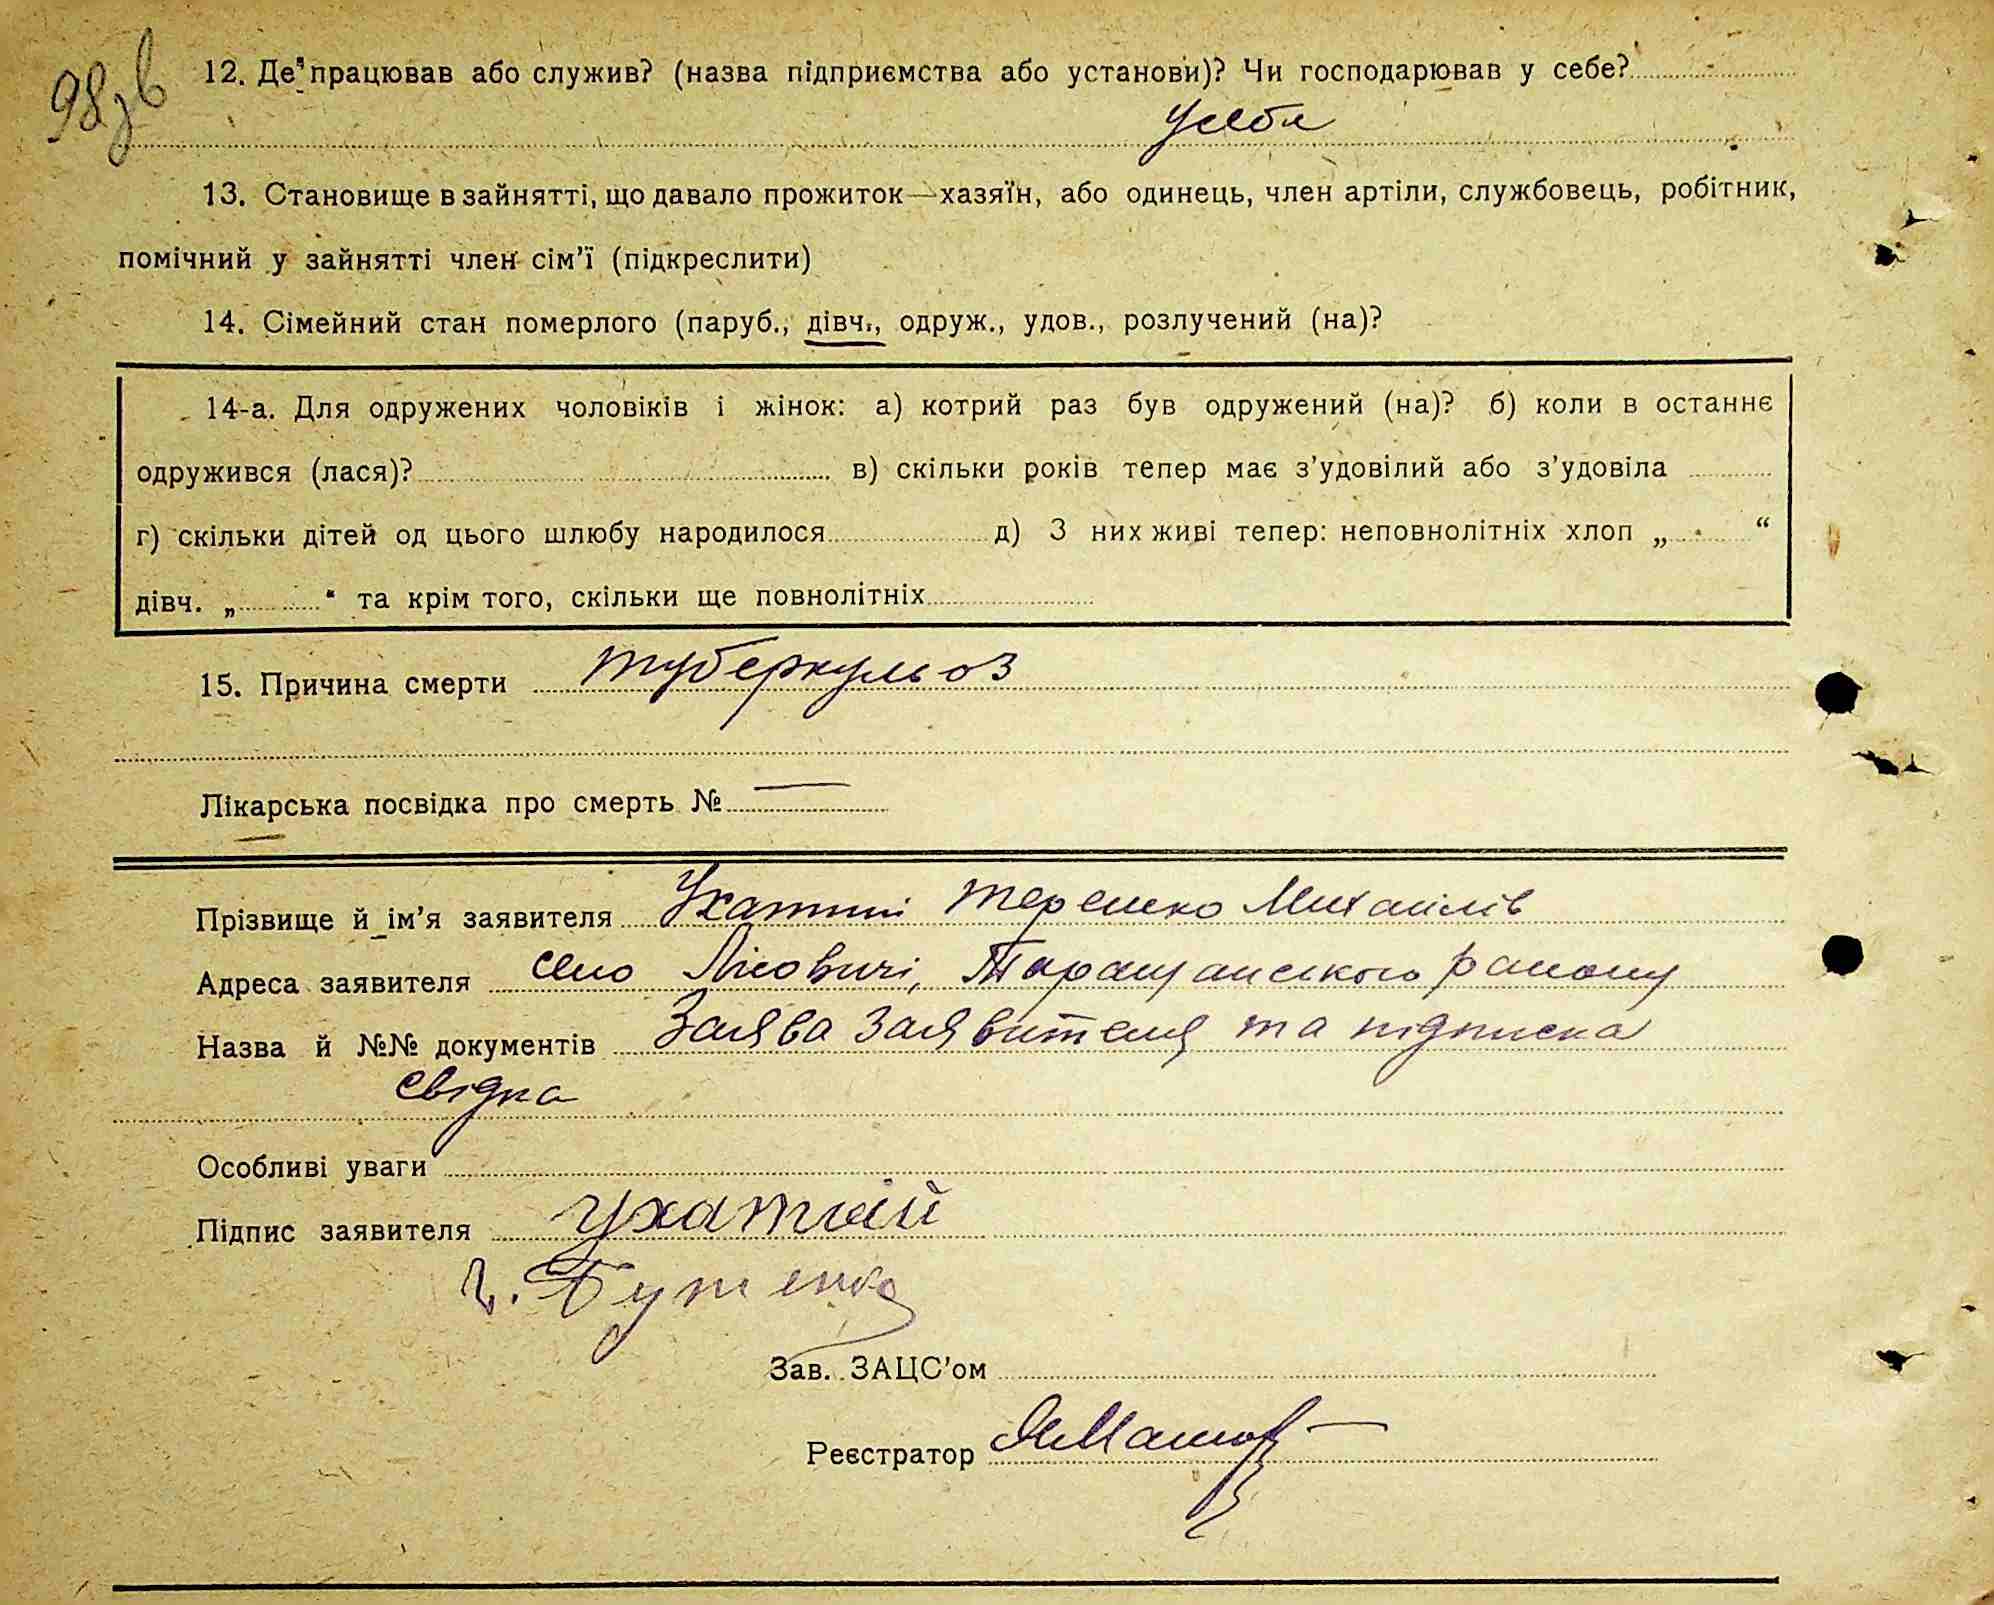 98зв
12. Де працював або служив? (назва підприємства або установи)? Чи господарював у себе?
У себе
13. Становище в зайнятті, що давало прожиток—хазяїн, або одинець, член артіли, службовець, робітник,
помічний у зайнятті член сім'ї (підкреслити)
14. Сімейний стан померлого (паруб., дівч., одруж., удов., розлучений (на)?
14-а. Для одружених чоловіків і жінок: а) котрий раз був одружений (на)? б) коли в останнє
одружився (лася)? в) скільки років тепер має з'удовілий або з'удовіла
г) скільки дітей од цього шлюбу народилося д) З них живі тепер: неповнолітніх хлоп „ “
дівч. „ “ та крім того, скільки ще повнолітніх
15. Причина смерти туберкульоз
Лікарська посвідка про смерть № —
Прізвище й ім'я заявителя Ухатий Терешко Михайлів
Адреса заявителя село Лісовичі, Таращанського району
Назва й №№ документів Заява заявителя та підписка
свідка
Особливі уваги
Підпис заявителя Ухатий
Г. Бутенко
Зав. ЗАЦС'ом
Реєстратор